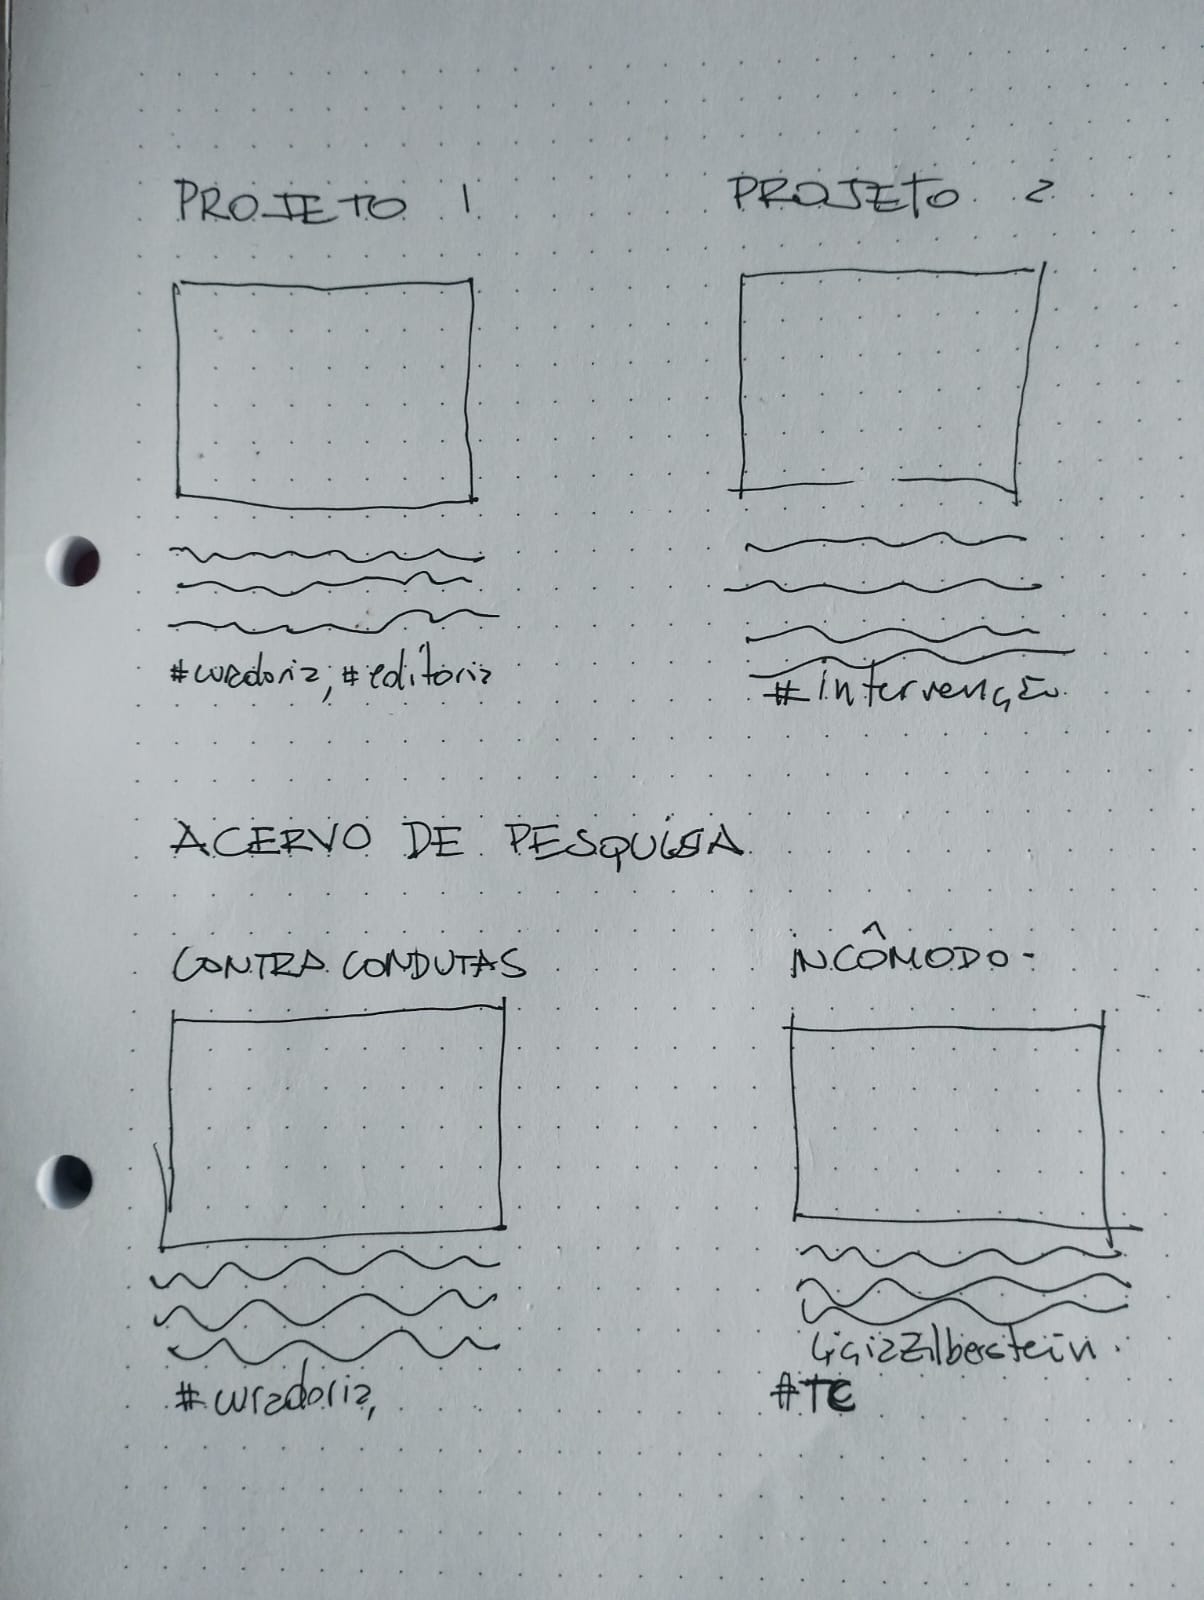 PROJETO 1
PROJETO 2
#curadoria, #editoria
#intervenção
ACERVO DE PESQUISA
CONTRA CONDUTAS
INCÔMODO-
#curadoria,
Ligia Zilberstein.
#TC